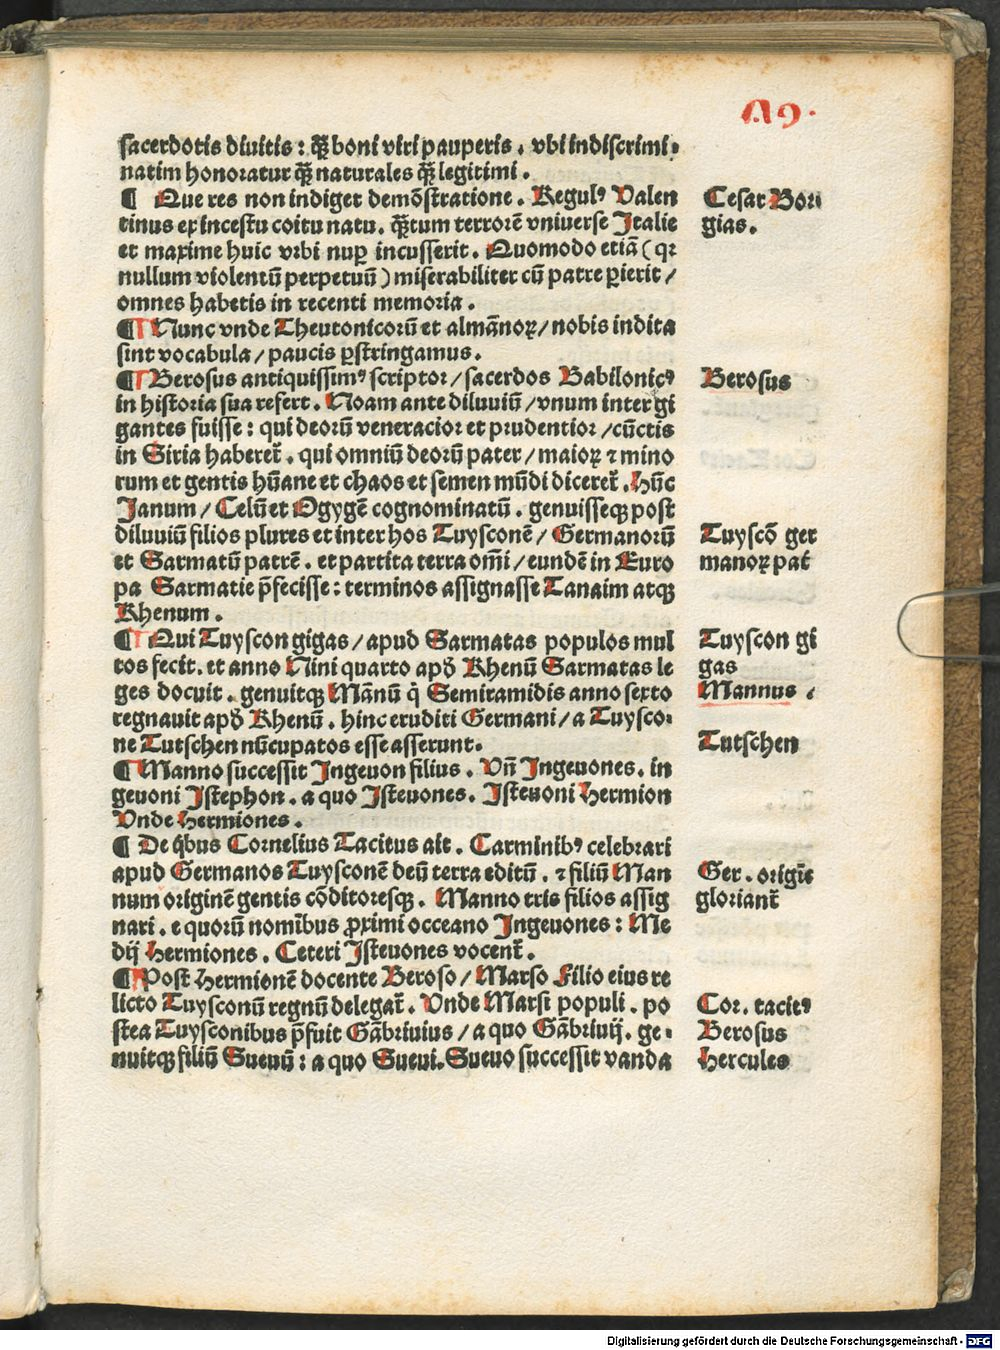 A9.
sacerdotis diuitis : q̃ boni viri pauperis . vbi indiscrimi⸗
natim honoratur q̃ naturales q̃ legitimi .
¶ Que res non indiget demõstratione . Regulꝰ Valen
tinus ex incestu coitu natu . q̃tum terrorẽ vniuerse Italie
et maxime huic vrbi nuꝑ incusserit . Quomodo etiã ( qꝛ
nullum violentũ perpetuũ ) miserabiliter cũ patre ꝑierit /
omnes habetis in recenti memoria .
Cesar Bor
gias .
¶ Nunc vnde Theutonicorũ et almãnoꝝ / nobis indita
sint vocabula / paucis ꝑstringamus .
¶ Berosus antiquissimꝰ scriptor / sacerdos Babilonicꝰ
in historia sua refert . Noam ante diluuiũ / vnum inter gi
gantes fuisse : qui deorũ veneracior et prudentior / cũctis
in Siria haberet̃ . qui omniũ deorũ pater / maioꝝ ⁊ mino
rum et gentis hũane et chaos et semen mũdi diceret̃ . Hũc
Janum / Celũ et Ogygẽ cognominatũ . genuisseqꝫ post
diluuiũ filios plures et inter hos Tuysconẽ / Germanorũ
et Sarmatũ patrẽ . et partita terra om̃i / eundẽ in Euro
pa Sarmatie p̃fecisse : terminos assignasse Tanaim atqꝫ
Rhenum .
Berosus
Tuyscõ ger
manoꝝ pat̃
¶ Qui Tuyscon gigas / apud Sarmatas populos mul
tos fecit . et anno Nini quarto apð Rhenũ Sarmatas le
ges docuit . genuitqꝫ Mãnũ q̇ Semiramidis anno sexto
regnauit apð Rhenũ . hinc eruditi Germani / a Tuysco⸗
ne Tutschen nũcupatos esse asserunt .
Tuyscon gi
gas
Mannus
Tutschen
¶ Manno successit Ingeuon filius . Vñ Ingeuones . in
geuoni Istephon . a quo Isteuones . Isteuoni Hermion
Vnde Hermiones .
¶ De q̇bus Cornelius Tacitus ait . Carminibꝰ celebrari
apud Germanos Tuysconẽ deũ terra editũ . ⁊ filiũ Man
num originẽ gentis cõditoresqꝫ . Manno tris filios assig
nari . e quorũ nomĩbus ꝓximi occeano Ingeuones : Me
dij Hermiones . Ceteri Isteuones vocent̃ .
Ger . origĩe
gloriant̃
¶ Post Hermionẽ docente Beroso / Marso Filio eius re
licto Tuysconũ regnũ delegat̃ . Vnde Marsi populi . po
stea Tuysconibus p̃fuit Gãbriuius / a quo Gãbriuij . ge⸗
nuitqꝫ filiũ Sueuũ : a quo Sueui . Sueuo successit vanda
Cor . tacitꝰ
Berosus
Hercules
Digitalisierung gefördert durch die Deutsche Forschungsgemeinschaft - DFG